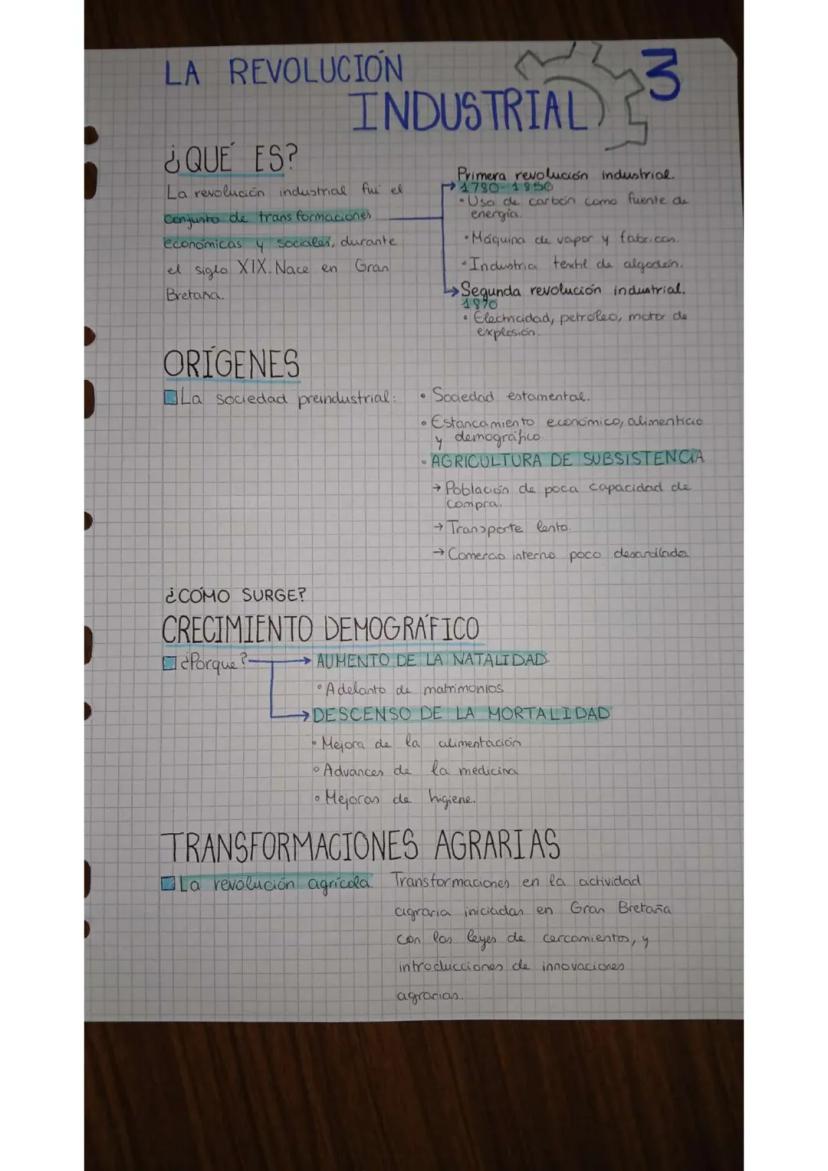 LA REVOLUCIÓN
INDUSTRIAL 3
¿QUÉ ES?
La revolución industrial fui el
conjunto de transformaciones
económicas y sociales, durante
el siglo XIX. Nace en Gran
Bretaña.
Primera revolución industrial.
→ 1780-1850
• Uso de carbón como fuente de
energía.
• Máquina de vapor y fábricas.
• Industria textil de algodón.
→ Segunda revolución industrial.
1870
• Electricidad, petróleo, motor de
explosión.
ORÍGENES
La sociedad preindustrial:
• Sociedad estamental.
• Estancamiento económico, alimenticio
y demográfico
• AGRICULTURA DE SUBSISTENCIA
→ Población de poca capacidad de
compra.
→ Transporte lento.
→ Comercio interno poco desarrollado
¿CÓMO SURGE?
CRECIMIENTO DEMOGRÁFICO
¿Porque? → AUMENTO DE LA NATALIDAD
• Adelanto de matrimonios
→ DESCENSO DE LA MORTALIDAD
• Mejora de la alimentación
• Advances de la medicina
• Mejoras de higiene.
TRANSFORMACIONES AGRARIAS
La revolución agrícola Transformaciones en la actividad
agraria iniciadas en Gran Bretaña
con las leyes de cercamientos, y
introducciones de innovaciones
agrarias.